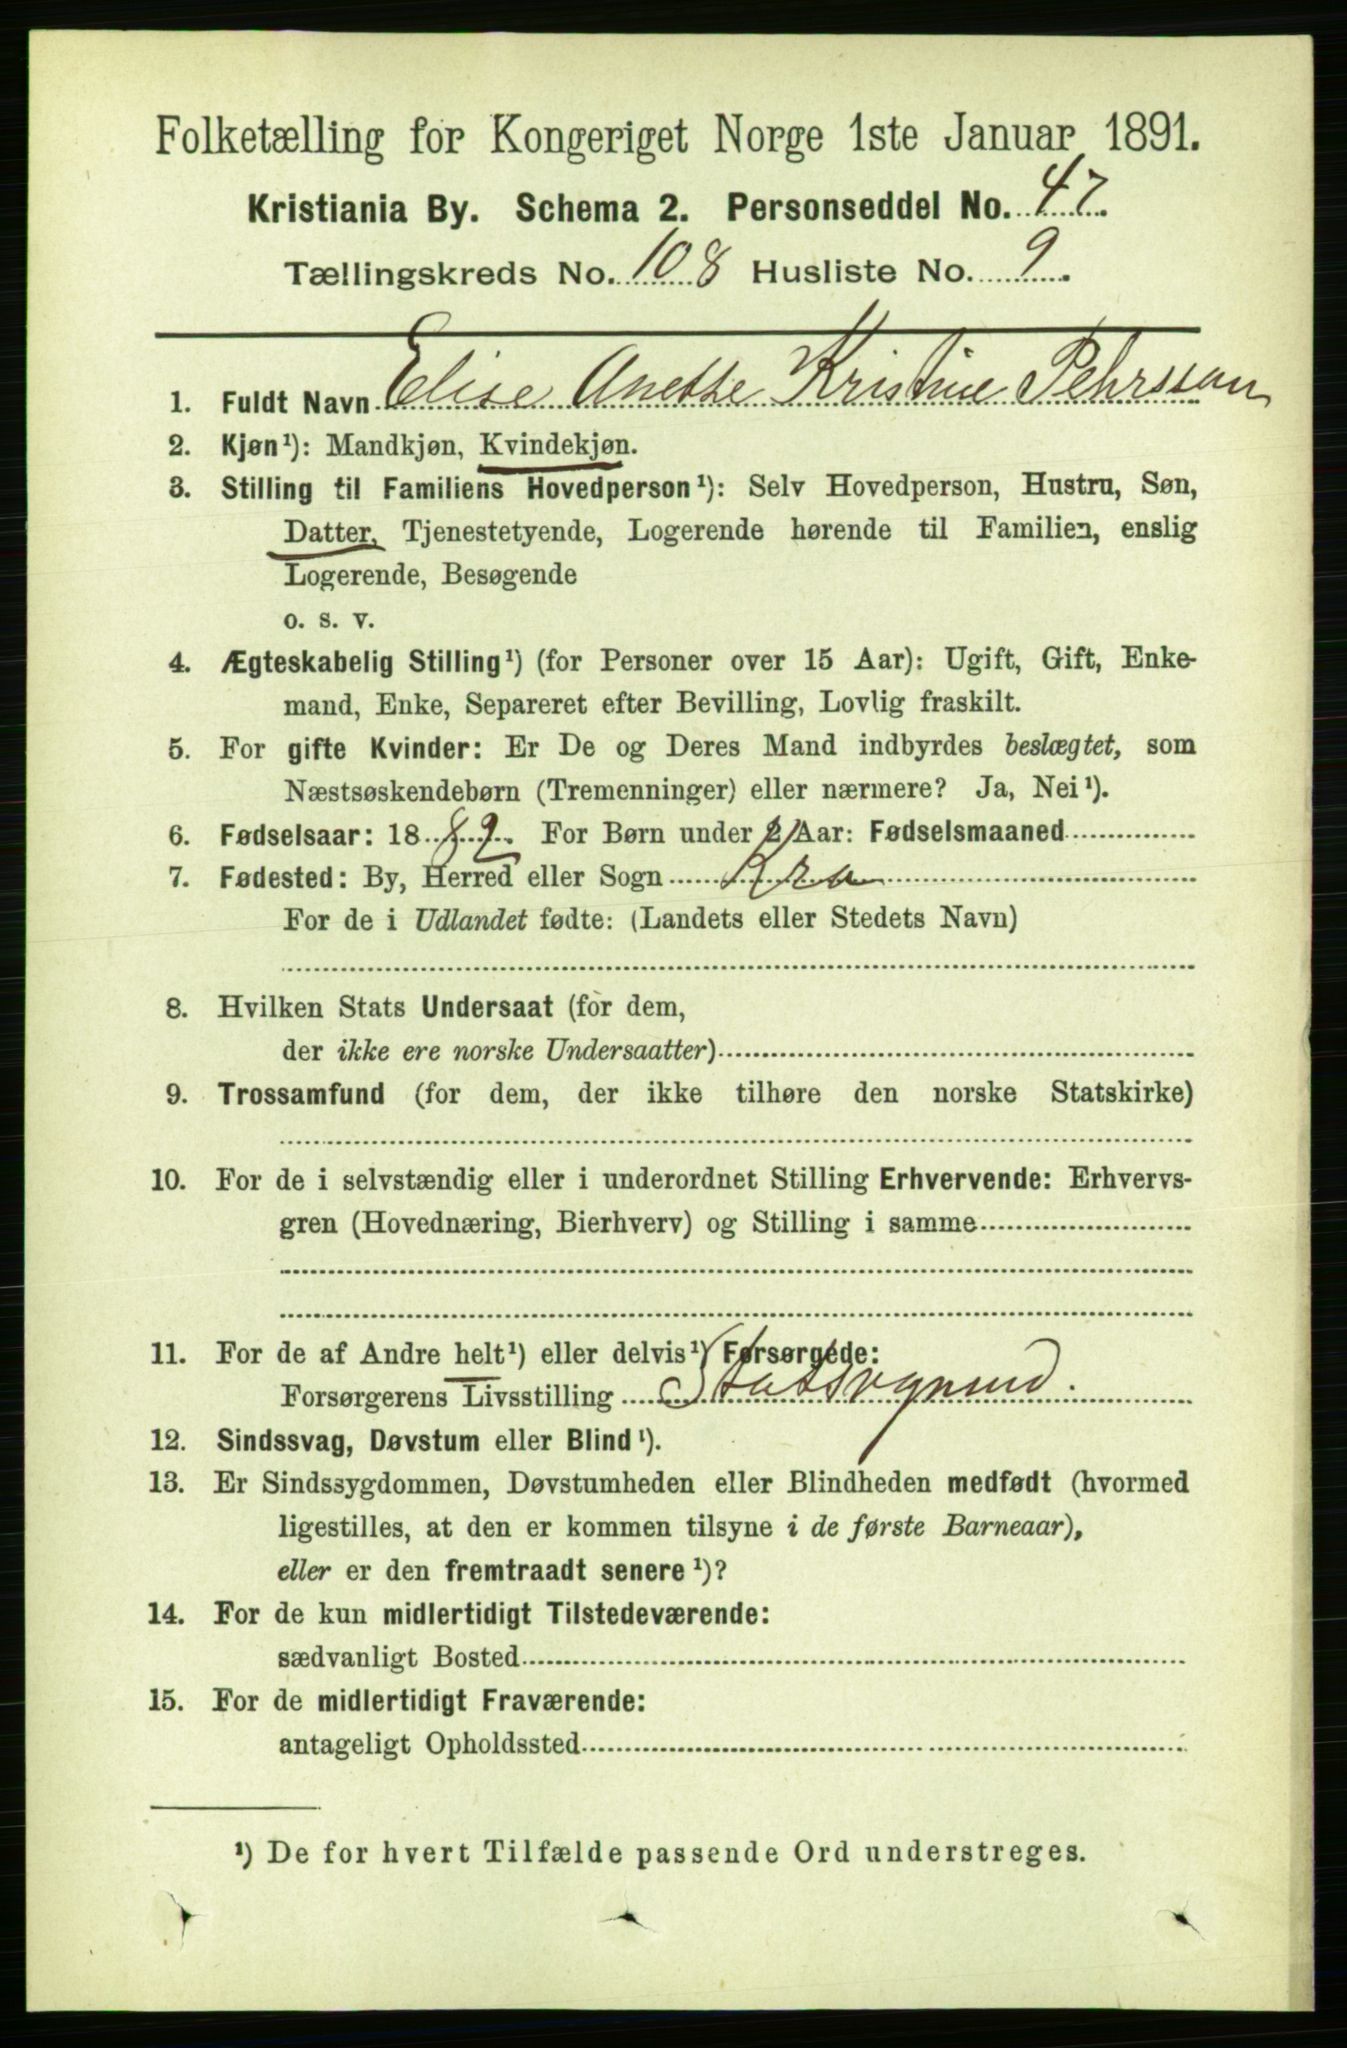 Folketælling for Kongeriget Norge 1ste Januar 1891.
Kristiania By. Schema 2. Personseddel No. 47.
Tællingskreds No. 108 Husliste No. 9.
1. Fuldt Navn Elise Anette Kristine Pehrsson
2. Kjøn¹): Mandkjøn, Kvindekjøn.
3. Stilling til Familiens Hovedperson¹): Selv Hovedperson, Hustru, Søn,
Datter, Tjenestetyende, Logerende hørende til Familien, enslig
Logerende, Besøgende
o. s. v.
4. Ægteskabelig Stilling¹) (for Personer over 15 Aar): Ugift, Gift, Enke-
mand, Enke, Separeret efter Bevilling, Lovlig fraskilt.
5. For gifte Kvinder: Er De og Deres Mand indbyrdes beslægtet, som
Næstsøskendebørn (Tremenninger) eller nærmere? Ja, Nei¹).
6. Fødselsaar: 1889. For Børn under 2 Aar: Fødselsmaaned
7. Fødested: By, Herred eller Sogn Kra
For de i Udlandet fødte: (Landets eller Stedets Navn)
8. Hvilken Stats Undersaat (for dem,
der ikke ere norske Undersaatter)
9. Trossamfund (for dem, der ikke tilhøre den norske Statskirke)
10. For de i selvstændig eller i underordnet Stilling Erhvervende: Erhvervs-
gren (Hovednæring, Bierhverv) og Stilling i samme
11. For de af Andre helt¹) eller delvis¹) Forsørgede:
Forsørgerens Livsstilling
12. Sindssvag, Døvstum eller Blind¹).
13. Er Sindssygdommen, Døvstumheden eller Blindheden medfødt (hvormed
ligestilles, at den er kommen tilsyne i de første Barneaar),
eller er den fremtraadt senere¹)?
14. For de kun midlertidigt Tilstedeværende:
sædvanligt Bosted
15. For de midlertidigt Fraværende:
antageligt Opholdssted
¹) De for hvert Tilfælde passende Ord understreges.